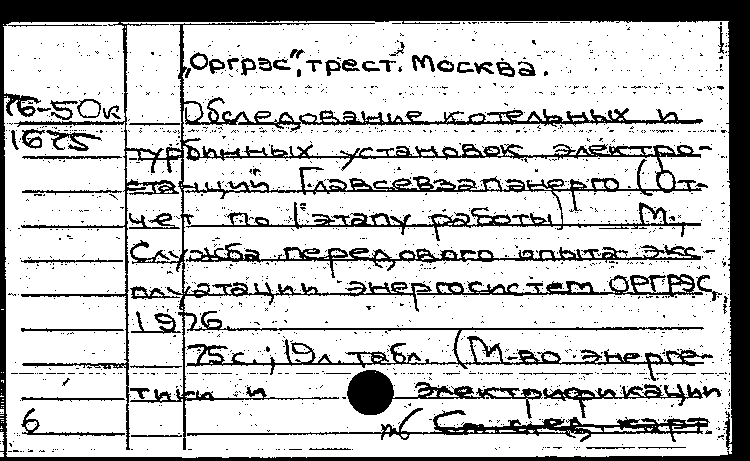 „Оргрэс", трест. Москва.
76-50к Обследование котельных и
1675 турбинных установок электро-
станций Главсевзапэнерго (От-
чет по I этапу работы) М.,
Служба передового опыта экс-
плуатации энергосистем ОРГРЭС,
1976.
75с.; 19л. табл. (М-во энерге-
тики и электрификации
6 См. след. карт.